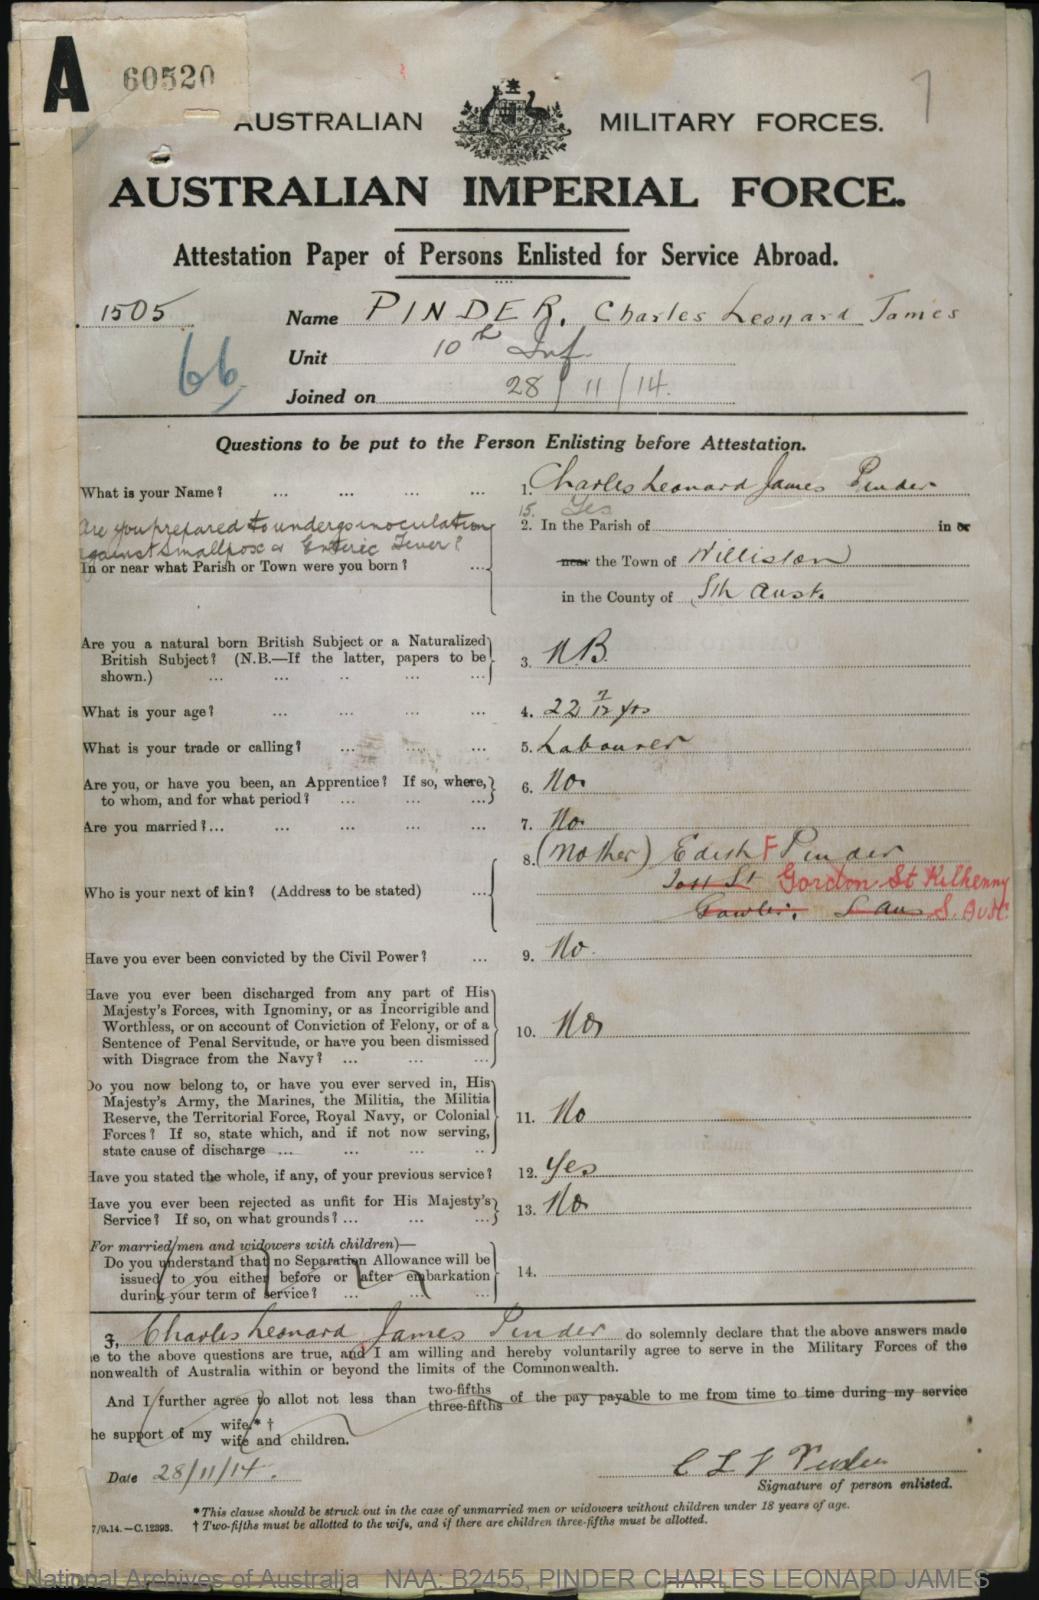 A 60520
AUSTRALIAN MILITARY FORCES.
AUSTRALIAN IMPERIAL FORCE.
Attestation Paper of Persons Enlisted for Service Abroad.
1505
Name PINDER, Charles Leonard James
66
Unit 10th Inf.
Joined on 28/11/14.
Questions to be put to the Person Enlisting before Attestation.
What is your Name? ... ... ... ... 1. Charles Leonard James Pinder
15. Yes
Are you prepared to undergo inoculation
against Smallpox & Enteric Fever?
2. In the Parish of in or
In or near what Parish or Town were you born? ... near the Town of Williston
in the County of Sth Aust.
Are you a natural born British Subject or a Naturalized
British Subject? (N.B.—If the latter, papers to be
shown.) ... ... .. ... ... 3. N.B.
What is your age? ... ... ... ... 4. 22 7/12 yrs
What is your trade or calling? ... ... ... 5. Labourer
Are you, or have you been, an Apprentice? If so, where,
to whom, and for what period? ... ... ... 6. No.
Are you married?... ... ... ... ... 7. No.
8. (Mother) Edith F Pinder
Who is your next of kin? (Address to be stated) ... St Gordon St Kilkenny
Gawler. S Aus S. Aust.
Have you ever been convicted by the Civil Power? ... 9. No.
Have you ever been discharged from any part of His
Majesty's Forces, with Ignominy, or as Incorrigible and
Worthless, or on account of Conviction of Felony, or of a
Sentence of Penal Servitude, or have you been dismissed
with Disgrace from the Navy? ... ... ... 10. No
Do you now belong to, or have you ever served in, His
Majesty's Army, the Marines, the Militia, the Militia
Reserve, the Territorial Force, Royal Navy, or Colonial
Forces? If so, state which, and if not now serving,
state cause of discharge ... ... ... .. 11. No
Have you stated the whole, if any, of your previous service? 12. Yes
Have you ever been rejected as unfit for His Majesty's
Service? If so, on what grounds? ... ... ... 13. No
(For married men and widowers with children)—
Do you understand that no Separation Allowance will be
issued to you either before or after embarkation
during your term of service? ... ... ... 14.
I, Charles Leonard James Pinder do solemnly declare that the above answers made
e to the above questions are true, and I am willing and hereby voluntarily agree to serve in the Military Forces of the
nonwealth of Australia within or beyond the limits of the Commonwealth.
And I further agree to allot not less than two-fifths three-fifths of the pay payable to me from time to time during my service
he support of my wife.* † wife and children.
Date 28/11/14.
C L J Pinder
Signature of person enlisted.
* This clause should be struck out in the case of unmarried men or widowers without children under 18 years of age.
7/9.14.—C.12393. † Two-fifths must be allotted to the wife, and if there are children three-fifths must be allotted.
National Archives of Australia NAA: B2455, PINDER CHARLES LEONARD JAMES